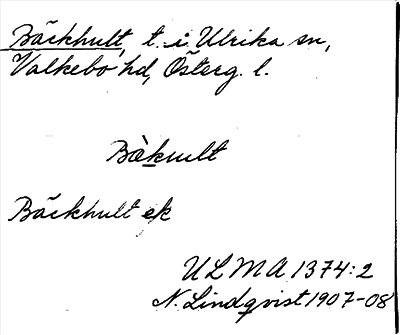 Bäckhult, t. i Ulrika sn,
Valkebo hd, Österg. l.
Bäkult
Bäckhult ek
ULMA 1374:2
N. Lindqvist 1907-08